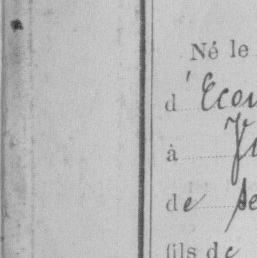 Né le
d'Econ
à
de se
fils de